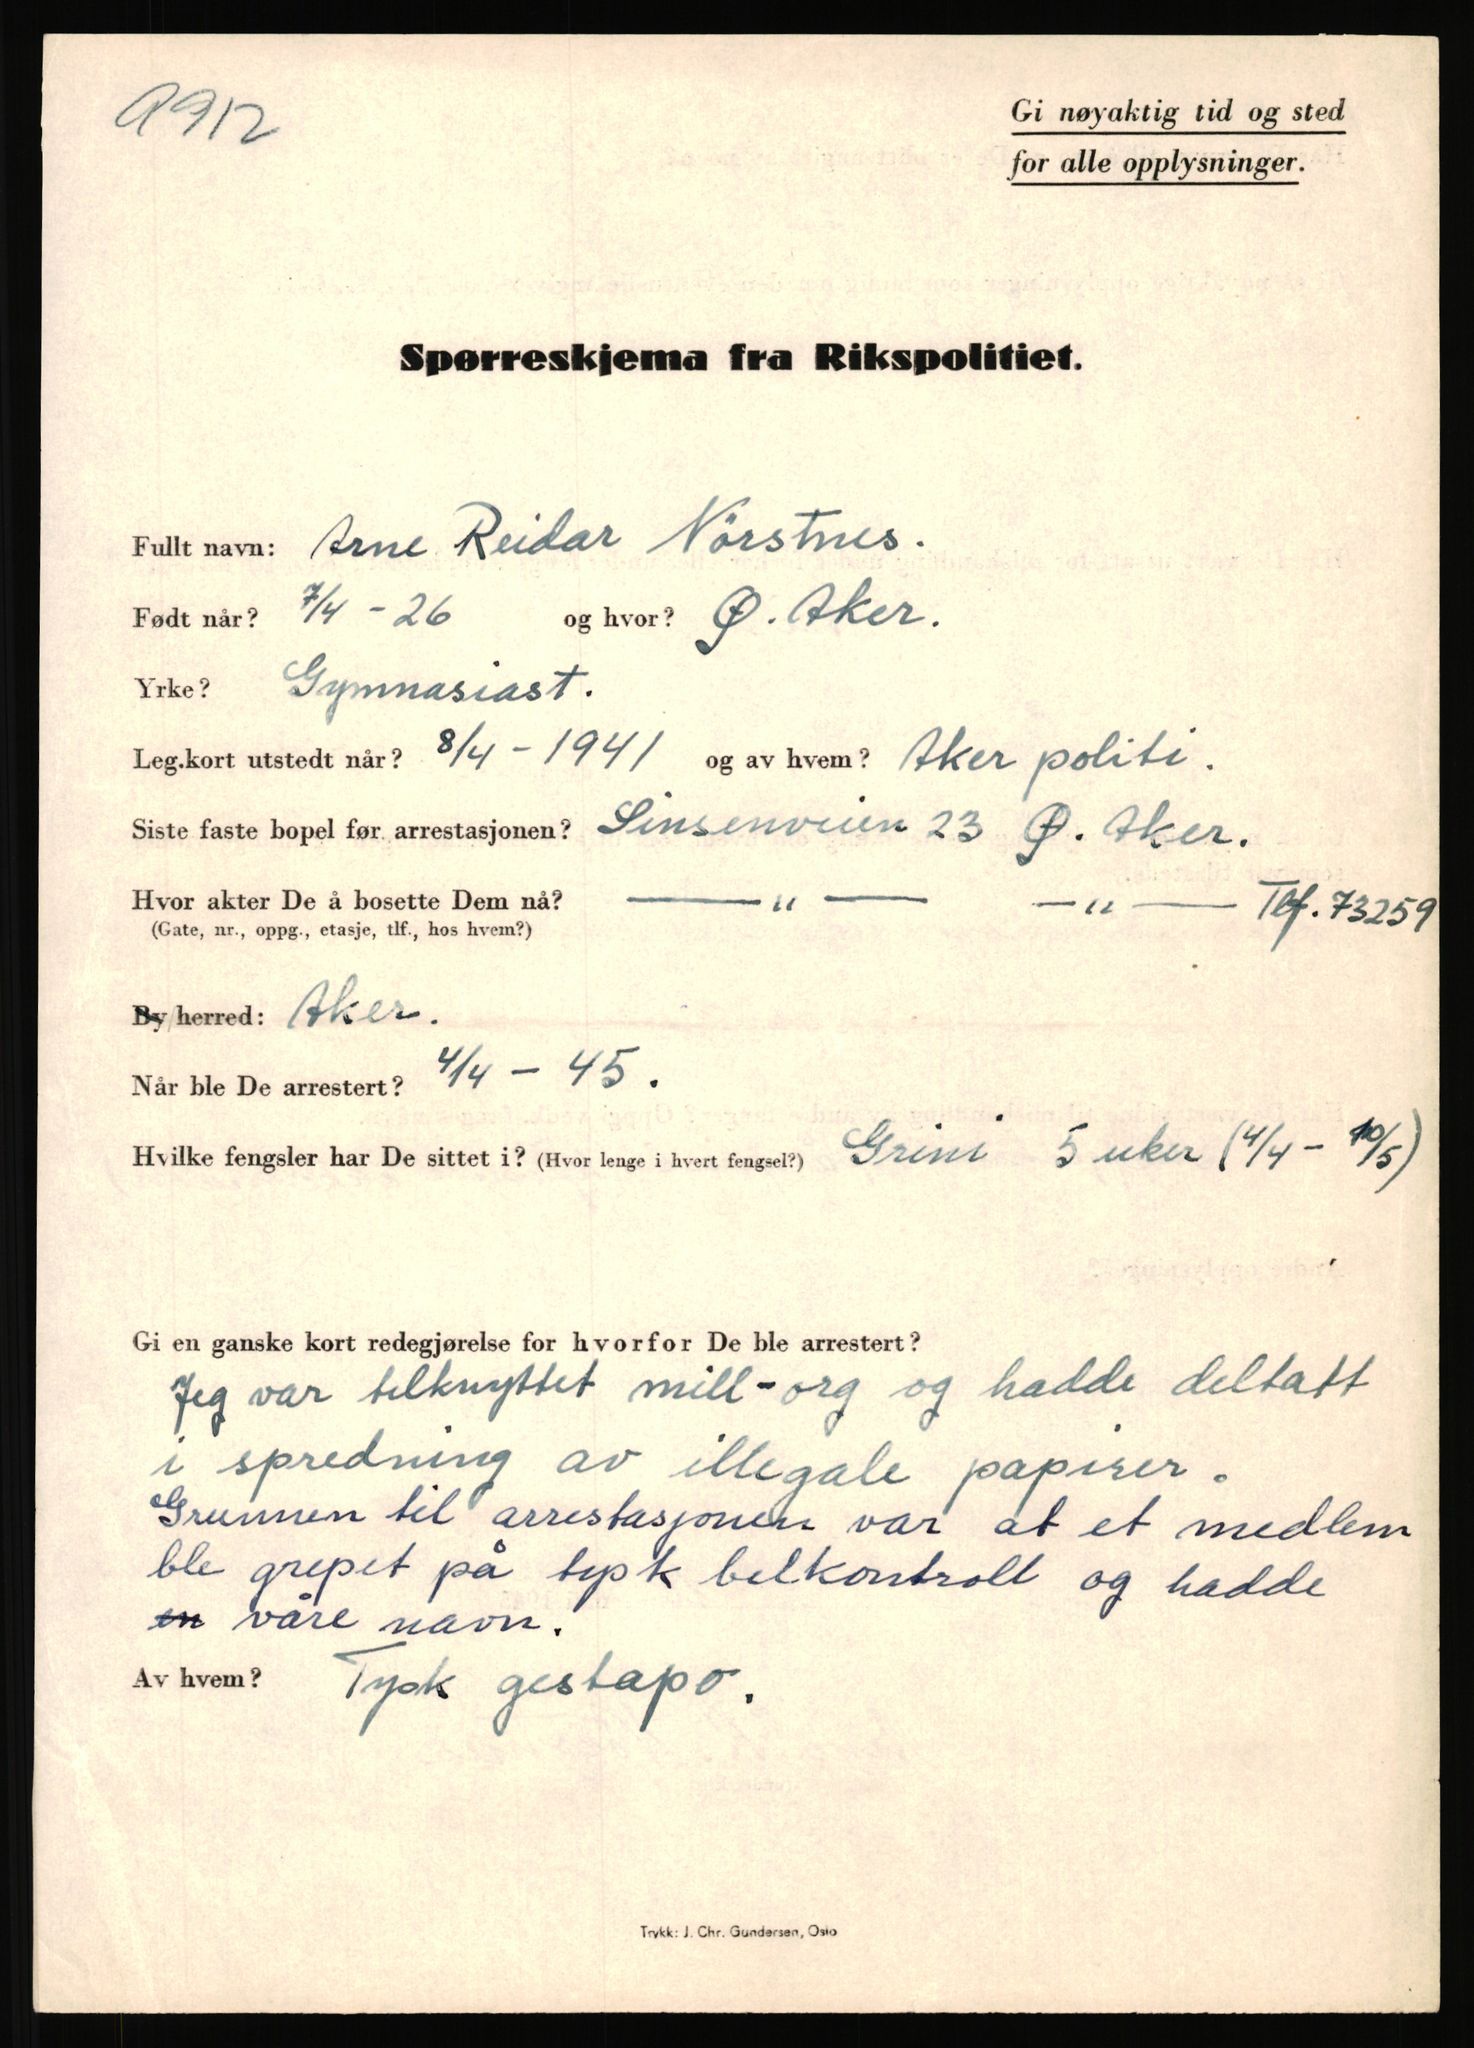 9912
Gi nøyaktig tid og sted
for alle opplysninger.
Spørreskjema fra Rikspolitiet.
Fullt navn: Arne Reidar Nörstnes.
Født når? 7/4 - 26 og hvor? Ø. Aker.
Yrke? Gymnasiast.
Leg.kort utstedt når? 8/4 - 1941 og av hvem? Aker politi.
Siste faste bopel før arrestasjonen? Sinsenveien 23 Ø. Aker.
Hvor akter De å bosette Dem nå? —— " —— — " —— Tlf. 73259
(Gate, nr., oppg., etasje, tlf., hos hvem?)
By/herred: Aker.
Når ble De arrestert? 4/4 - 45.
Hvilke fengsler har De sittet i? (Hvor lenge i hvert fengsel?) Grini 5 uker (4/4 - 10/5)
Gi en ganske kort redegjørelse for hvorfor De ble arrestert?
Jeg var tilknyttet mill-org og hadde deltatt
i spredning av illegale papirer.
Grunnen til arrestasjonen var at et medlem
ble grepet på tysk bilkontroll og hadde
en våre navn.
Av hvem? Tysk gestapo.
Trykk: J. Chr. Gundersen, Oslo